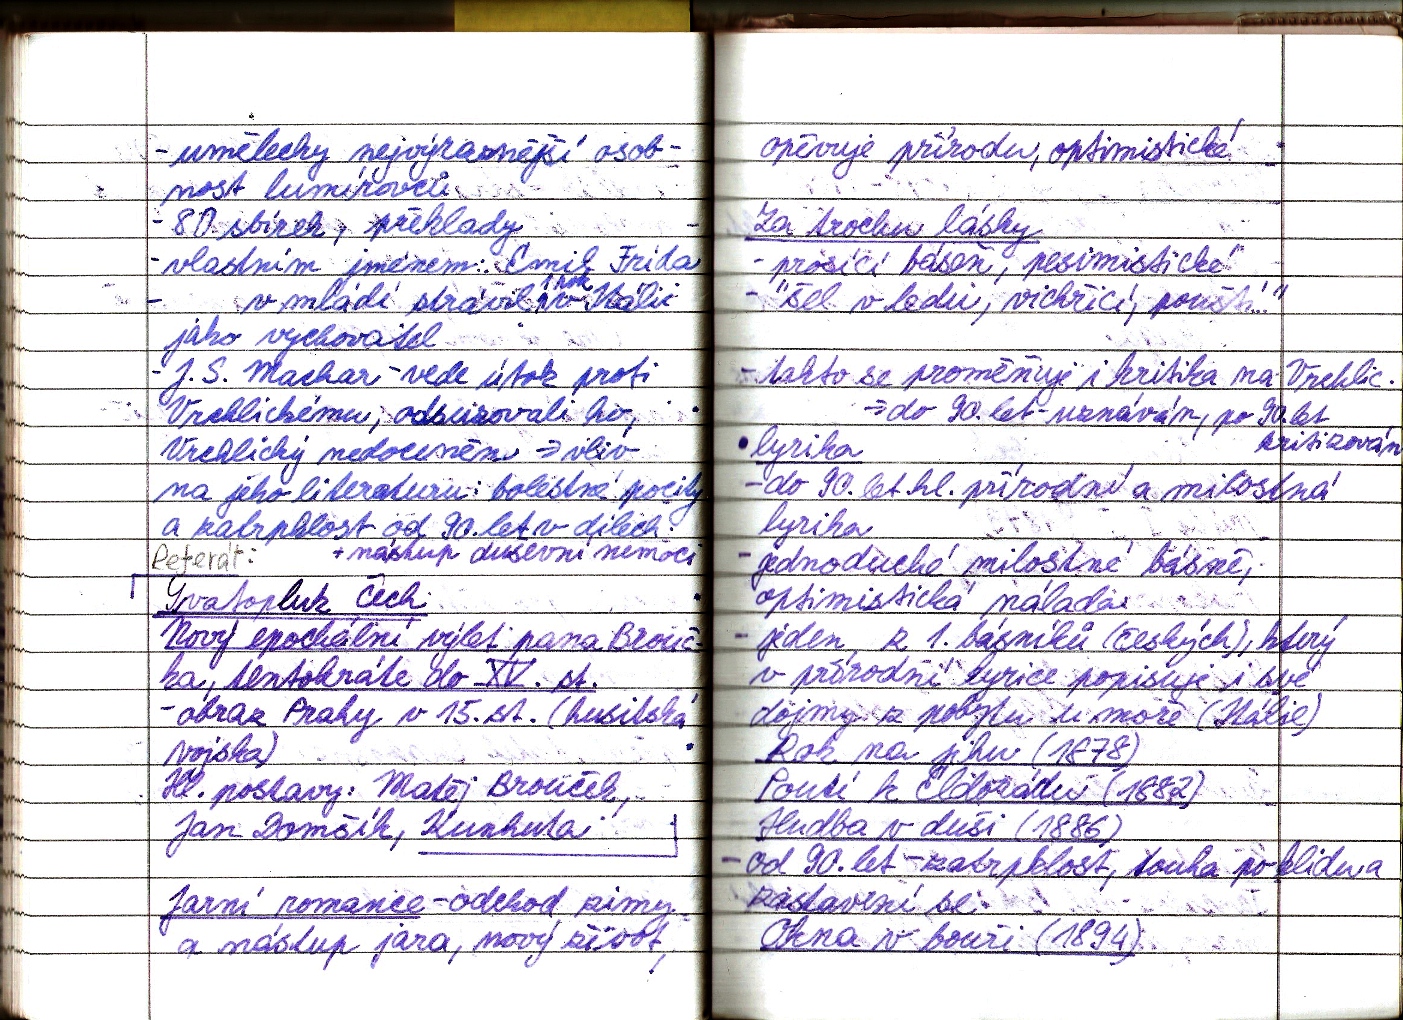 - umělecky nejvýraznější osob-
nost lumírovců
- 80 sbírek, překlady
- vlastním jménem: Emil Frída
- v mládí strávil 1 rok v Itálii
jako vychovatel
- J. S. Machar - vede útok proti
Vrchlickému, odsuzovali ho,
Vrchlický nedoceněn => vliv
na jeho literaturu: bolestné pocity
a zatrpklost od 90. let v dílech
+ nástup duševní nemoci
Referát:
Svatopluk Čech
Nový epochální výlet pana Brouč-
ka, tentokráte do XV. st.
- obraz Prahy v 15. st. (husitská
vojska)
Hl. postavy: Matěj Brouček,
Jan Domšík, Kunhuta
Jarní romance - odchod zimy
a nástup jara, nový život,
opěvuje přírodu, optimistické
Za trochu lásky
- prosící báseň, pesimistické
- "šel v ledu, vichřicí, pouští..."
- takto se proměňuje i kritika na Vrchlic.
=> do 90. let - uznáván, po 90. let
kritizován
• lyrika
- do 90. let hl. přírodní a milostná
lyrika
- jednoduché milostné básně,
optimistická nálada
- jeden z 1. básníků (českých), který
v přírodní lyrice popisuje i své
dojmy z pobytu u moře (Itálie)
Rok na jihu (1878)
Poutí k Eldorádu (1882)
Hudba v duši (1886)
- od 90. let - zatrpklost, touha po klidu a
zastavení se
Okna v bouři (1894)